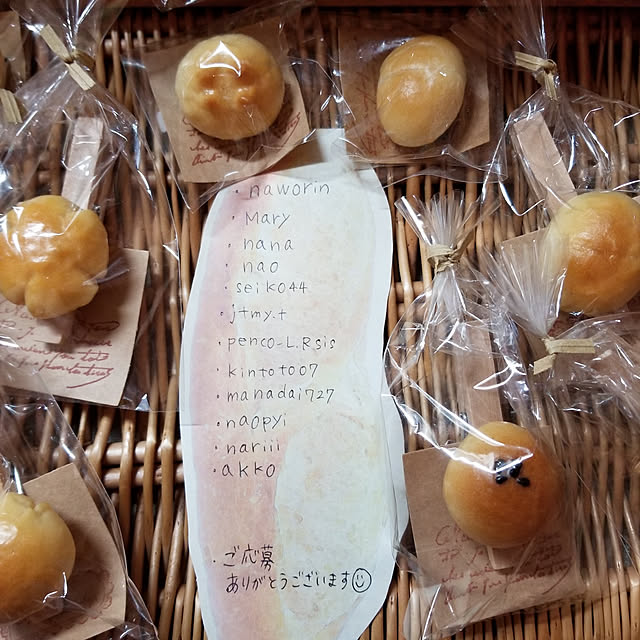 ・naworin
・Mary
・nana
・nao
・seiko44
・jtmy.t
・penco-L.Rsis
・kintoto07
・manadai727
・naopyi
・nariii
・akko
・ご応募
ありがとうございます☺